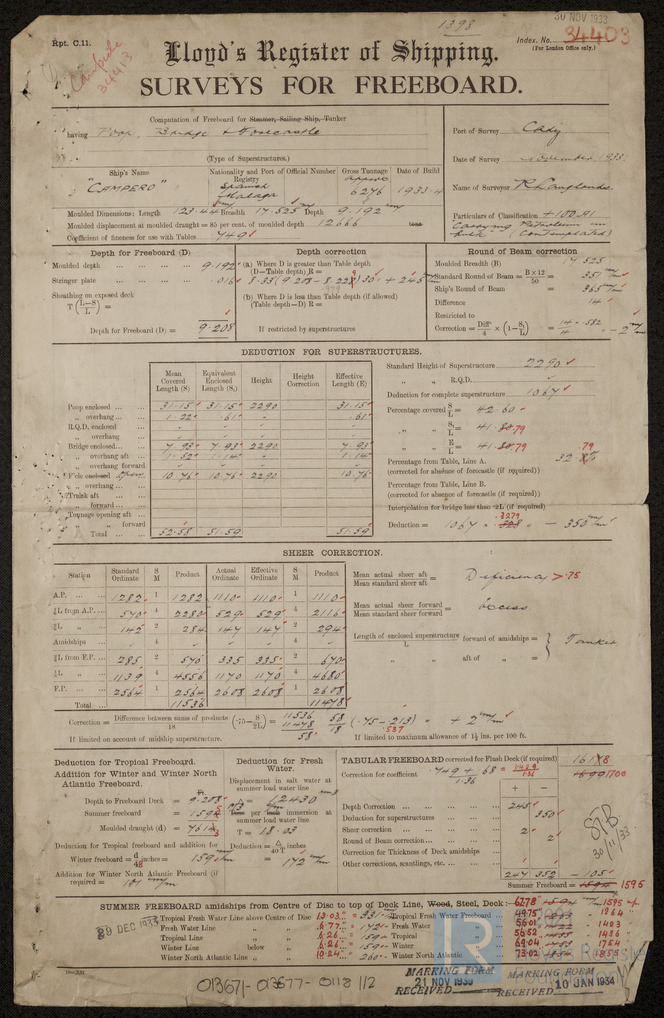 1398
30 NOV 1933
Rpt. C.11.
Index. No. 34403
(For London Office only.)
Campero
34413
Lloyd's Register of Shipping.
SURVEYS FOR FREEBOARD.
Computation of Freeboard for Steamer, Sailing Ship, Tanker
having Poop, Bridge & Forecastle
(Type of Superstructures.)
Port of Survey Cadiz
Date of Survey November 1933.
Name of Surveyor
Particulars of Classification +100A1
Carrying Petroleum in
bulk (Contemplated)
Ship's Name Nationality and Port of Registry Official Number Gross Tonnage Date of Build
"CAMPERO" Spanish Malaga approx 6276 1933.4
Moulded Dimensions: Length 123.44 Breadth 17.525 Depth 9.192
Moulded displacement at moulded draught = 85 per cent. of moulded depth 12666 tons
Coefficient of fineness for use with Tables .749
Depth for Freeboard (D)
Moulded depth 9.192
Stringer plate .016
Sheathing on exposed deck
T (L-S / L) =
Depth for Freeboard (D) = 9.208
Depth correction
(a) Where D is greater than Table depth
(D—Table depth) R =
8.33 (9.208 - 8.229) 30 = + 245 mm
(b) Where D is less than Table depth (if allowed)
(Table depth—D) R =
If restricted by superstructures
Round of Beam correction
Moulded Breadth (B) 17.525
Standard Round of Beam = B×12 / 50 = 351
Ship's Round of Beam = 365
Difference 14
Restricted to
Correction = Diff / 4 × (1 - S₁ / L) = 14 × .582 / 4 = - 2 mm
DEDUCTION FOR SUPERSTRUCTURES.
Mean Covered Length (S) Equivalent Enclosed Length (S₁) Height Height Correction Effective Length (E)
Poop enclosed 31.15 31.15 2290 31.15
" overhang 1.22 .61 " .61
R.Q.D. enclosed
" overhang
Bridge enclosed 7.93 7.93 2290 7.93
" overhang aft 1.52 1.14 " 1.14
" overhang forward
F'cle enclosed 10.76 10.76 2290 10.76
" overhang
Trunk aft
" forward
Tonnage opening aft
" " forward
Total 52.58 51.59 51.59
Standard Height of Superstructure 2290
" " R.Q.D.
Deduction for complete superstructure 1067
Percentage covered S / L = 42.60
" " S₁ / L = 41.79
" " E / L = 41.79
Percentage from Table, Line A. 32.79
(corrected for absence of forecastle (if required))
Percentage from Table, Line B.
(corrected for absence of forecastle (if required))
Interpolation for bridge less than ·2L (if required)
Deduction = 1067 × .3279 = - 350 mm
SHEER CORRECTION.
Station Standard Ordinate S M Product Actual Ordinate Effective Ordinate S M Product
A.P. 1282 1 1282 1110 1110 1 1110
⅙L from A.P. 570 4 2280 529 529 4 2116
⅓L " 142 2 284 147 147 2 294
Amidships 4 4
⅓L from F.P. 285 2 570 335 335 2 670
⅙L " 1139 4 4556 1170 1170 4 4680
F.P. 2564 1 2564 2608 2608 1 2608
Total 11536 11478
Mean actual sheer aft / Mean standard sheer aft = Deficiency >.75
Mean actual sheer forward / Mean standard sheer forward = Excess
Length of enclosed superstructure / L forward of amidships =
" " aft of " = } Tanker
Correction = Difference between sums of products / 18 (·75 - S / 2L) = 11536 11478 58 58 / 18 (.75 - .213) .537 = + 2 mm
If limited on account of midship superstructure.
If limited to maximum allowance of 1½ ins. per 100 ft.
Deduction for Tropical Freeboard.
Addition for Winter and Winter North
Atlantic Freeboard.
Depth to Freeboard Deck = 9.208
Summer freeboard = 1595
Moulded draught (d) = 7613
Deduction for Tropical freeboard and addition for
Winter freeboard = d / 48 inches = 159
Addition for Winter North Atlantic Freeboard (if
required =
Deduction for Fresh
Water.
Displacement in salt water at
summer load water line
Δ = 12430
Tons per inch immersion at
summer load water line
T = 18.03
Deduction = Δ / 40T inches
= 172 mm
TABULAR FREEBOARD corrected for Flush Deck (if required) 1618
Correction for coefficient .749 + .68 / 1.36 = 1.429 / 1.36 1700
+ -
Depth Correction 245
Deduction for superstructures 350
Sheer correction 2
Round of Beam correction 2
Correction for Thickness of Deck amidships
Other corrections, scantlings, etc.
247 352 - 105
Summer Freeboard = 1595
30/11/33.
SUMMER FREEBOARD amidships from Centre of Disc to top of Deck Line, Wood, Steel, Deck: 1595
29 DEC 1933
Tropical Fresh Water Line above Centre of Disc 13.03 = 331 Tropical Fresh Water Freeboard 1264
Fresh Water Line " " 6.77 = 172 Fresh Water " 1423
Tropical Line " " 6.26 = 159 Tropical " 1436
Winter Line below " 6.26 = 159 Winter " 1754
Winter North Atlantic Line " " 10.24 = 260 Winter North Atlantic " 1855
MARKING FORM
RECEIVED 21 NOV 1933
MARKING FORM
RECEIVED 10 JAN 1934
013671-013677-0118 1/2